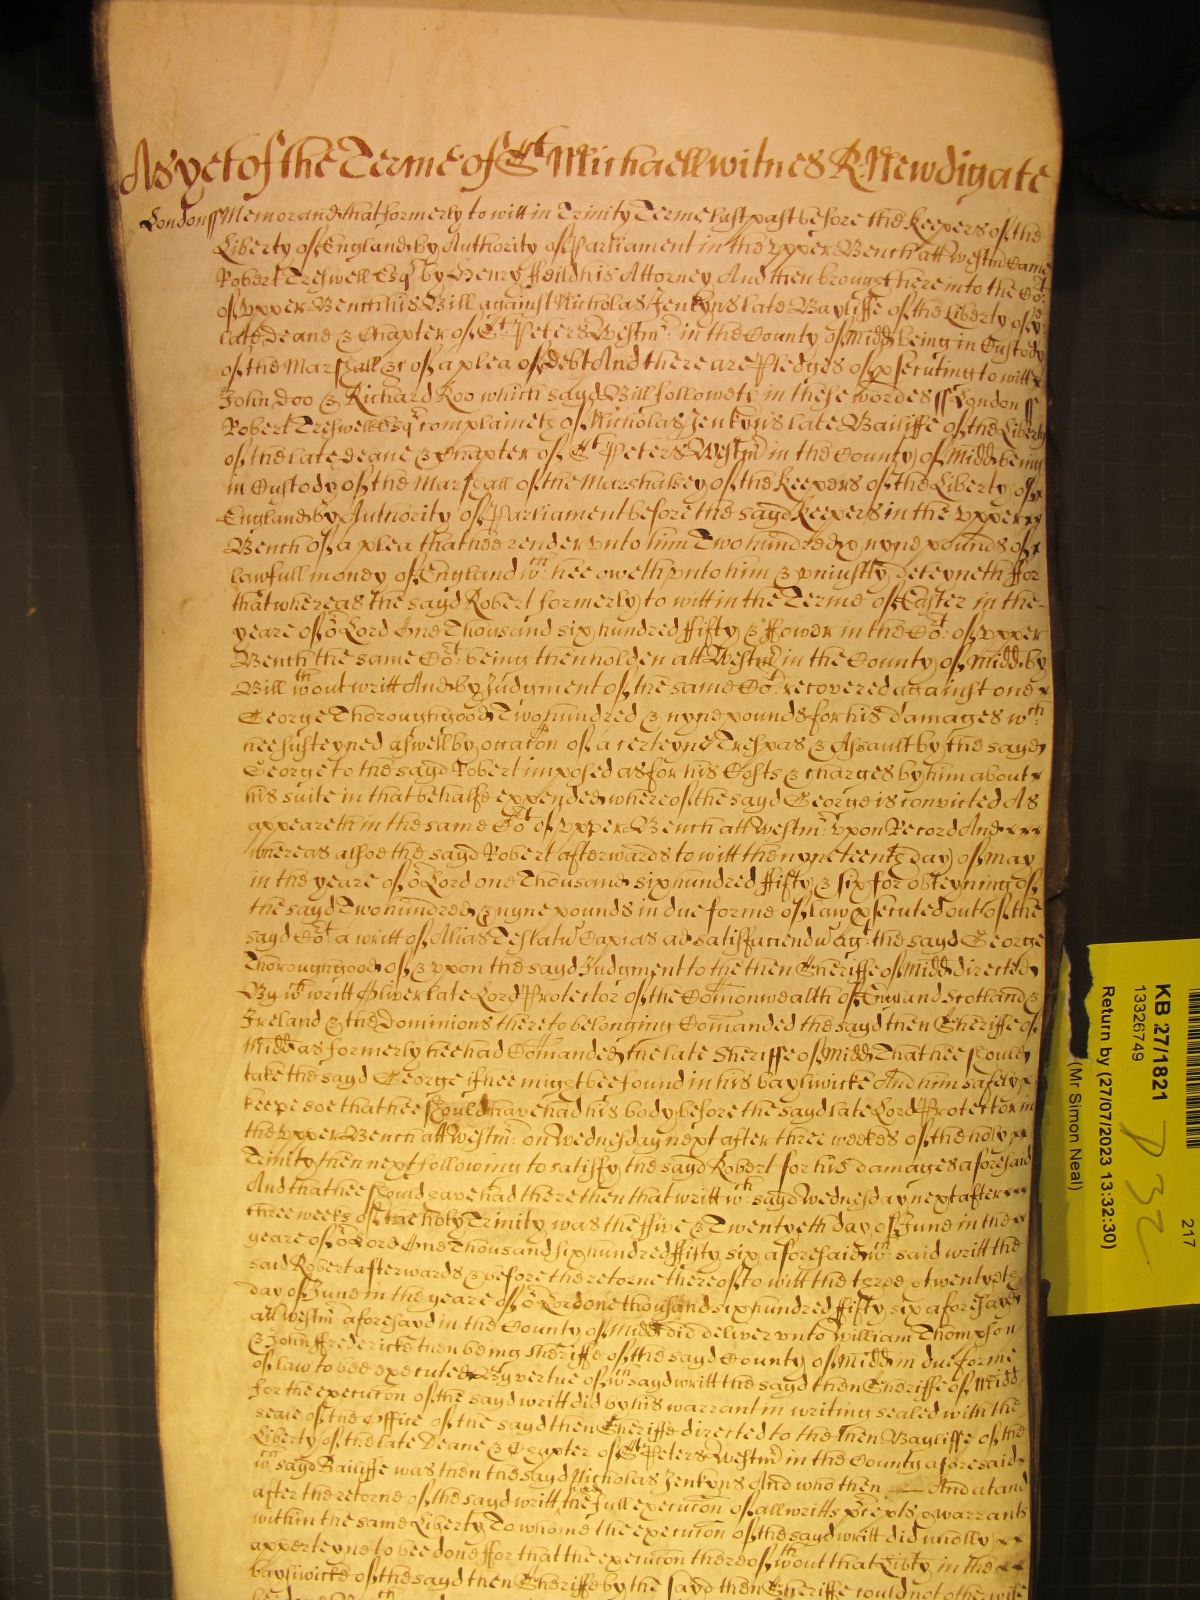 As yet of the Terme of St Michaell witnes R Newdigate
London ss Memorand that formerly to witt in Trinity Terme last past before the Keepers of the
Liberty of England by Authority of Parliament in the upper Bench att Westm Came
Robert Treswell Esqr by Henry Feild his Attorney And then brought here into the Cot
of upper Bench his Bill against Nicholas Jenkyns late Bayliffe of the Liberty of ye
late deane & Chapter of St Peters Westmr in the County of Midd being in Custody
of the Marshall &c of a plea of Debt And there are Pledges of psecuting to witt
John Doo & Richard Roo which sayd Bill followeth in these wordes ss London ss
Robert Treswell Esqr complaineth of Nicholas Jenkyns late Bailiffe of the Liberty
of the late deane & Chapter of St Peters Westmr in the County of Midd being
in Custody of the Marshall of the Marshalsey of the Keepers of the Liberty of
England by Authority of Parliament before the sayd Keepers in the upper
Bench of a plea that hee render vnto him Two hundred & nyne pounds of
lawfull money of England wch hee oweth vnto him & vniustly deteyneth ffor
that whereas the sayd Robert formerly to witt in the Terme of Easter in the
yeare of or Lord One Thousand six hundred ffifty & ffower in the Cot of upper
Bench the same Cot being then holden att Westmr in the County of Midd by
Bill wthout writt And by Judgment of the same Cot recovered against one
George Thoroughgood Two hundred & nyne pounds for his damages wch
hee susteyned aswell by occacon of a certeyne Trespas & Assault by the sayd
George to the sayd Robert imposed as for his Costs & charges by him about
his suite in that behalfe expended whereof the sayd George is convicted As
appeareth in the same Cot of upper Bench att Westmr vpon Record And
whereas alsoe the sayd Robert afterwards to witt the nyneteenth day of May
in the yeare of or Lord one Thousand six hundred ffifty & six for obteyning of
the sayd Two hundred & nyne pounds in due forme of law psecuted out of the
sayd Cot a writt of Alias Testatu Capias ad satisfaciendu agt the sayd George
Thoroughgood of & vpon the sayd Judgment to the then Sheriffe of Midd directed
By wch writt Oliver late Lord Protector of the Comonwealth of England Scotland &
Ireland & the Dominions thereto belonging Comanded the sayd then Sheriffe of
Midd as formerly hee had Comanded the late Sheriffe of Midd That hee should
take the sayd George if hee might bee found in his baylywicke And him safely
keepe soe that hee should have had his body before the sayd late Lord Protector in
the upper Bench att Westmr on Wednesday next after three weekes of the holy
Trinity then next following to satisfy the sayd Robert for his damages aforesaid
And that hee should have had there then that writt wch sayd Wednesday next after
three weeks of the holy Trinity was the ffive & Twentyeth day of June in the
yeare of or Lord One Thousand six hundred ffifty six aforesaid wch said writt the
said Robert afterwards & before the retorne thereof to witt the three & twentyeth
day of June in the yeare of or Lord one thousand six hundred ffifty six aforesayd
att Westmr aforesayd in the County of Midd did deliver vnto William Thompson
& John Fredericke then being Sheriffe of the sayd County of Midd in due forme
of law to bee executed By vertue of wch sayd writt the sayd then Sheriffe of Midd
for the execucon of the sayd writt did by his warrant in writing sealed with the
seale of the Office of the sayd then Sheriffe directed to the then Bayliffe of the
Liberty of the late Deane & Chapter of St Peters Westmr in the County aforesaid
wch sayd Bailiffe was then the sayd Nicholas Jenkyns And who then And at and
after the retorne of the sayd writt had full execucon of all writts pcepts & warrants
within the same Liberty To whome the execucon of the sayd writt did wholly
apperteyne to bee done ffor that the execucon thereof wthout that Libty in the
baylywicke of the sayd then Sheriffe by the sayd then Sheriffe could not otherwise
KB 27/1821
13326749
Return by (27/07/2023 13:32:30)
(Mr Simon Neal)
217